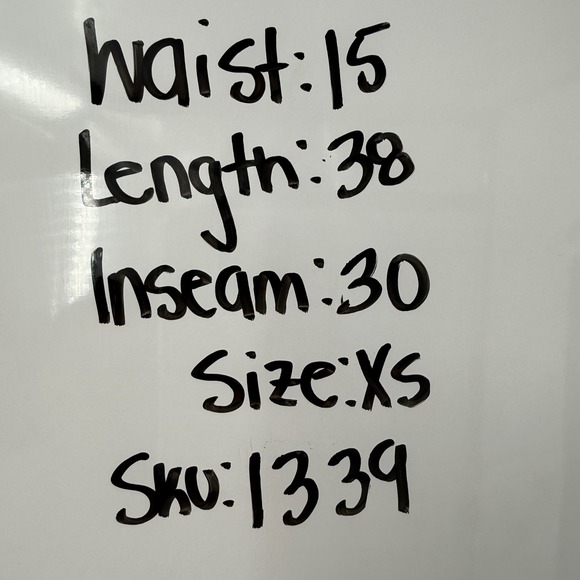 Waist:15
Length:38
Inseam:30
Size:XS
Sku:1339